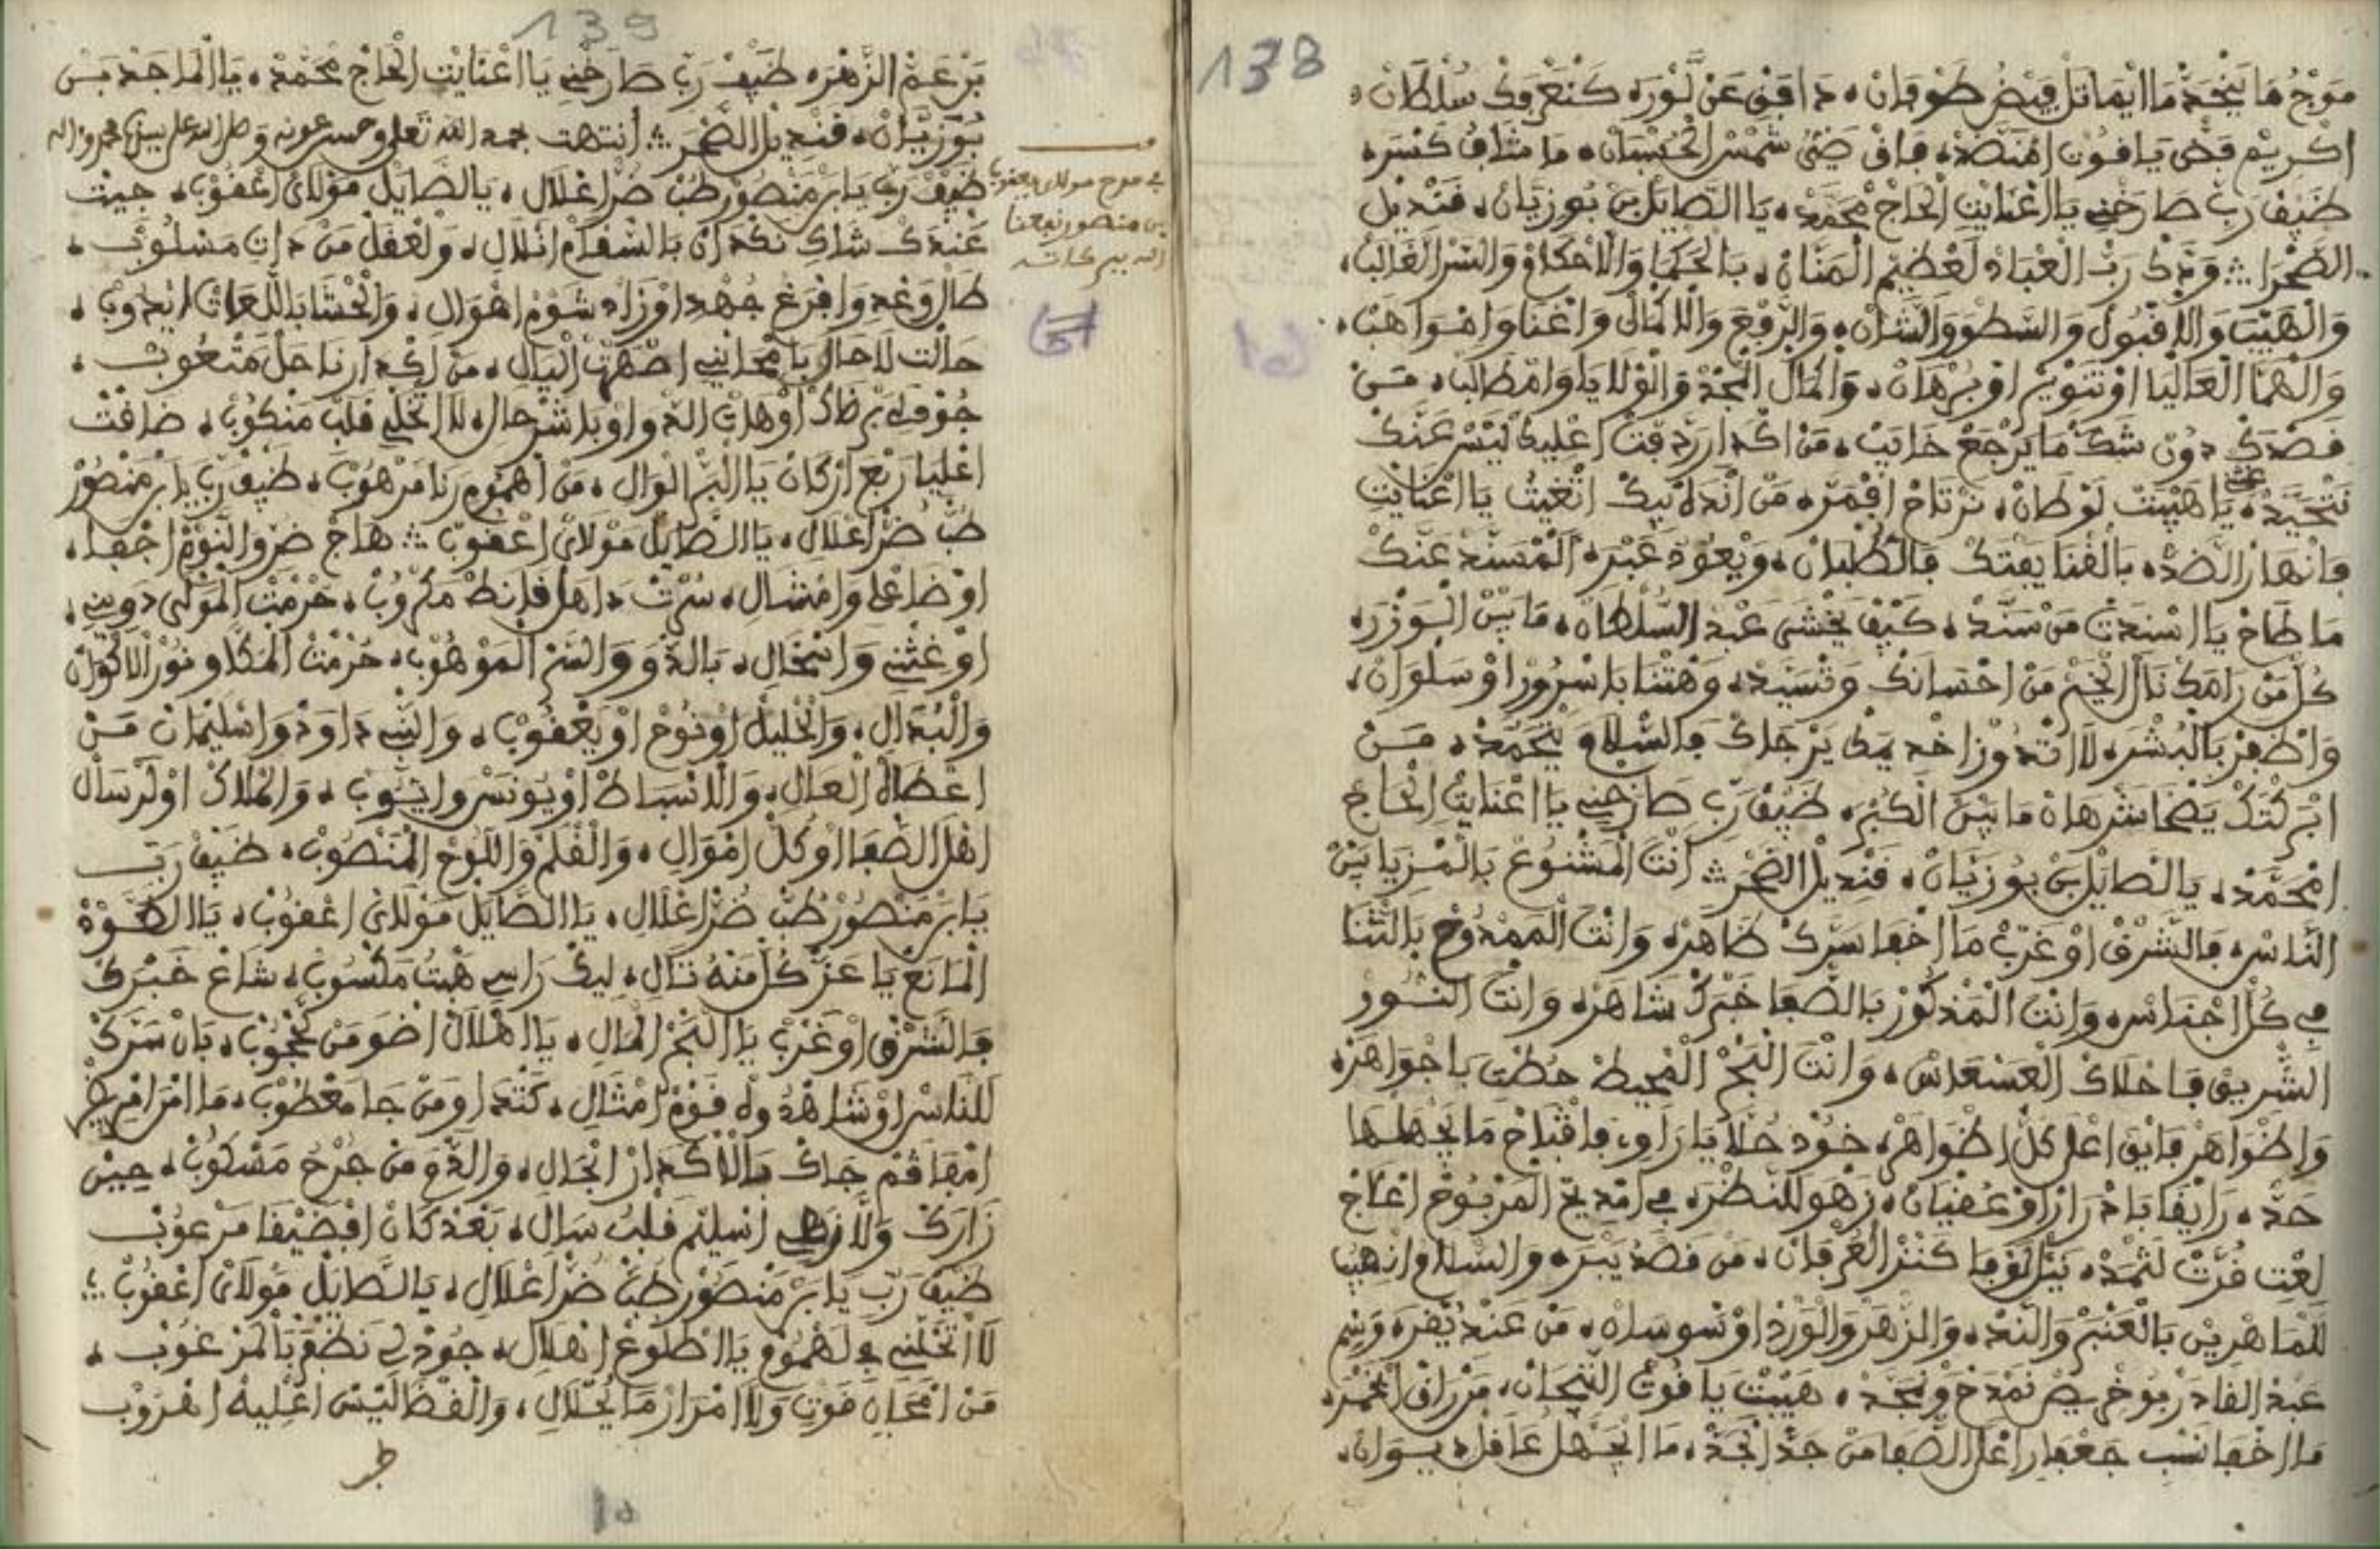 138
موج ما يخمد ما ايماثل فيض طوفان، دافق عن لوره كنعروك سلطان،
اكريم فضى ياقوت امنضد، فاق ضى شمس الحسبان، ما مثلف كنسره
ضيف رب طارخني يا اعنايت الحاج محمد، يا الصايل بن بوزيان، فنديل
الصحرا ؞ ودك رب العباد لعظيم المنان، بالحكما والاحكام والسر الغالب،
والهيبا والاقبول والسطو والشان، والرفع والاكمال واغنا وامواهب،
والهما العاليا اوتنوير اوبرهان، والمال المجد والولايا وامطالب، من
فصدك دون شك ما يرجع خايب، من اكدار زدفت اعليك ليسر عنك
نتحيد، يا هيبت لوطان، نرتاح افمر، من اندلا بيك اتغيث يا اعنايت
فانهار الضد، بالفنا يفتك فالطبان، ويعود عبره المسند عنك
ما طاح يا اسندت من سند، كيف يخشى عبد السلطان، ما بين الوزره
كل من رامك نال الخير من احسانك وتسيد، وهتنا باسرور اوسلوان،
واظفر بالبشره لا اتدوز اخديمك يرجاك فالسلام يتحمد، من
ابركتك يضحا شرهان ما بين الكبر، ضيف رب طارخني يا اعنايت الحاج
امحمد، يا الصايل بن بوزيان، فنديل الصحر ؞ انت المشنوع بالمزيا بين
الناس، فالشرق اوغرب ما اخفا سرك ظاهر، وانت الممدوح بالثنا
في كل اجناس، وانت المذكور بالصفا خبرك شاهر، وانت النور
الشريق فاحلاك العسعاس، وانت البحر المحيط حطت باجواهر،
واظواهر فايق اعلى كل اظواهر، خود حلا يا راوي، فاقباح ما يجهلها
حد، رايفا بادرار اوعفيان، زهو للنظره، في امديح المربوح اعلاج
لعت فرت لثمد، بنل لوفا كنز العرفان، من فصد يبره، والسلام انهيب
للماهرين بالعنبر والند، والزهر والورد اوسوسان، من عند يفره وسم
عبد القادر بوخريص نمدح ونمجد، هيبت يا فوت التيجان، من راق اخمره
ما اخفا نسب جعفار اعلى الصفا من جد الجد، ما الجهل عافل بسوان،
139
بر عم الزهره، ضيف رب طارخني يا اعنايت الحاج محمد، يا الماجد بن
بوزيان، فنديل الصحر ؞ انتهت بحمد الله تعلى وحسن عونه وصلى الله على سيدنا محمد واله
ضيف رب يا بر منصور طب ضر اعلال، يا الصايل مولاى اعفوب، جيت
عندك شاك نكدان بالسفام انلال، ولعفل من دات مسلوب،
طال وغد وافرغ جهد اوزاد شوم اهوال، والحشا باللعات ايدوب،
حالت لاحال يا محاينى اصهرت اليال، من اكدارنا حل متعوب،
جوف لي بر ظاك اوهات الدواو باشرحال، لا اتخلي فلب منكوب، ضافت
اعليا ربع اركان يا البر الوال، من اهموم رنا مرهوب، ضيف رب يا بر منصور
طب ضر اعلال، يا الصايل مولاى اعفوب ؞ هاج ضر والنوم اجفا،
اوضاعلى وامشال، سرت داهل فانط مكروب، حرمت المولى دوينى،
اوغثنى وانتحال، بالدو والسر الموهوب، حرمت المكلاو نور الاكوان
والبدال، والخليل اونوح اويعفوب، والنبي داود واسليمان من
اعطاه العال، والانساط اويونس وايوب، والملاك اولرسال
اهل الصفا اوكل اموال، والفلم واللوح المنصوب، ضيف رب
يا بر منصور طب ضر اعلال، يا الصايل مولاى اعفوب، يا الطود
المانع يا عز كل منه نال، ليك راس هبت مكسوب، شاع خبرك
فالشرق اوغرب يا البحر المال، يا الهلال اضو من محجوب، بان سرك
للناس اوشاهدوله فوم امثال، كتدا ومن جا معطوب، ما امر امريض
امفاقم جاك بالاكدار انجال، والدو من جرح مسكوب، حين
زارك ولا زهى اسليم فلب سال، بعد كان افضيفا مرعوب
ضيف رب يا بر منصور طب ضر اعلال، يا الصايل مولاى اعفوب ؞
لا اتخلنى في لهموم يا اطلوع انهلال، جود لي نظفر بالمرغوب،
من امحاه فوت ولا امرار ما يحلال، والفظا ليس اعليه اهروب
في مدح مولاى يعفوب
بن منصور نفعنا
الله ببركاته